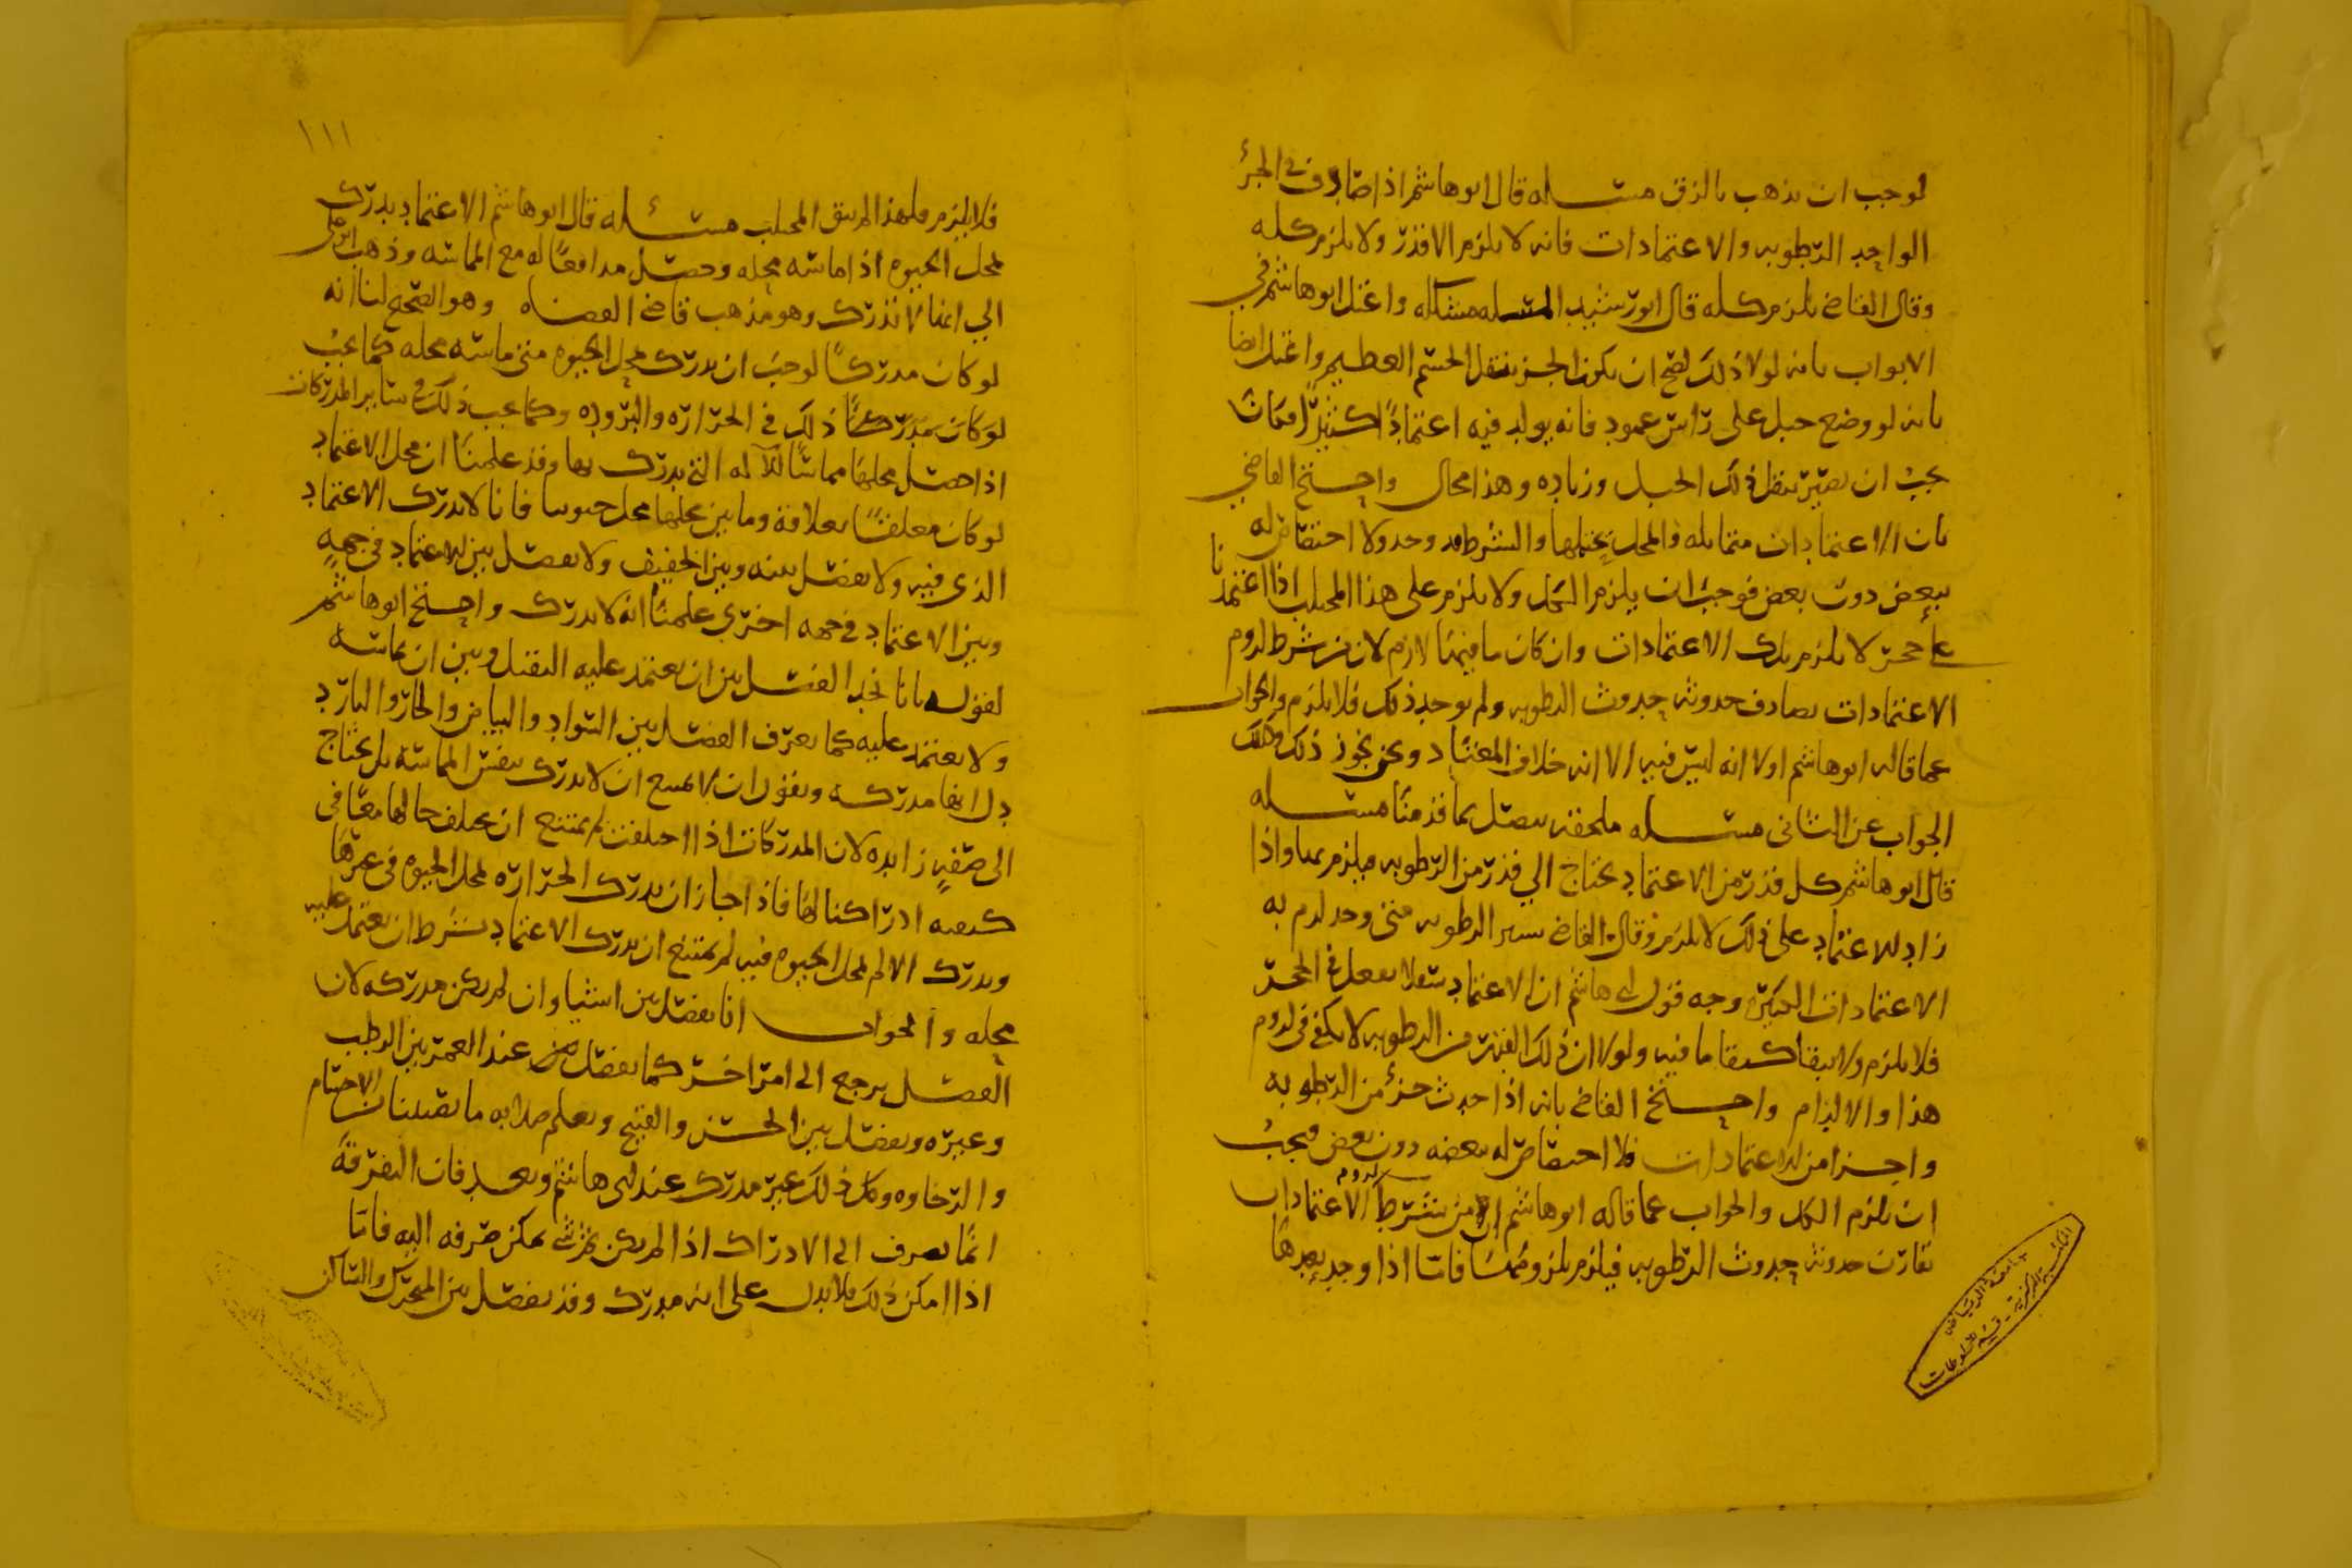 لوجب ان يذهب بالزق مسئله قال ابوهاشم اذا صادف في الجزء
الواحد الرطوبه والاعتمادات فانه لا يلزم الا قدر ولا يلزم كله
وقال القاضي يلزم كله قال ابورشيد المسله مشكله واعتل ابوهاشم في
الابواب بانه لولا ذلك لصح ان يكون الجزء بثقل الجسم العظيم واعتل ايضا
بانه لو وضع جبل على راس عمود فانه يولد فيه اعتمادًا كثيرًا فكان
يجب ان يصير بثقل ذلك الجبل وزياده وهذا محال واحتج القاضي
بان الاعتمادات متماثله والمحل يحتملها والشرط قد وجد ولا اختصاص له
ببعض دون بعض فوجب ان يلزم الكل ولا يلزم على هذا المحل اذا اعتمدنا
على حجر لا يلزم تلك الاعتمادات وان كان ما فيها لازم لان من شرط لزوم
الاعتمادات يصادف حدوثه حدوث الرطوبه ولم يوجد ذلك فلا يلزم والجواب
عما قاله ابوهاشم اولا انه ليس فيه الا انه خلاف المعتاد ونحن نجوز ذلك وكذلك
الجواب عن الثاني مسئله ملحقه تتصل بما قدمنا مسئله
قال ابوهاشم كل قدر من الاعتماد يحتاج الي قدر من الرطوبه فيلزم بها واذا
زاد الاعتماد على ذلك لا يلزم وقال القاضي يسير الرطوبه متى وجد لزم به
الاعتمادات الكثيره وجه قول ابي هاشم ان الاعتماد سفلا يفعل في الحجر
فلا يلزم ولا يبقا كبقا ما فيه ولولا ان ذلك القدر من الرطوبه لا يكفي في لزوم
هذا والا لزام واحتج القاضي بانه اذا حدث جزء من الرطوبه
واجزا من الاعتمادات فلا اختصاص له ببعضه دون بعض فيجب
ان يلزم الكل والجواب عما قاله ابوهاشم ان من شرط لزوم الاعتمادات
تقارن حدوثه حدوث الرطوبه فيلزم بلزومها فاما اذا وجد بعدها
١١١
فلا يلزم فلهذا لم يبق المحلب مسئله قال ابوهاشم الاعتماد يدرك
لمحل الحيوه اذا ماسه محله وحصل مدافعًا له مع المماسه وذهب ابوعلي
الي انها لا تدرك وهو مذهب قاضي القضاه وهو الصحيح لنا انه
لو كان مدركًا لوجب ان يدرك محل الحيوه متى ماسه محله كما يجب
لو كان مدركًا ذلك في الحراره والبروده وكما يجب ذلك في ساير المدركات
اذا حصل محلها مماسًا للآله التي يدرك بها وقد علمنا ان محل الاعتماد
لو كان معلقًا بعلاقة وماس محلها محل حيوتنا فانا لا ندرك الاعتماد
الذي فيه ولا نفصل بينه وبين الخفيف ولا نفصل بين الاعتماد في جهةٍ
وبين الاعتماد في جهه اخرى علمنا انه لا يدرك واحتج ابوهاشم
لقوله بانا نجد الفصل بين ان يعتمد عليه الثقيل وبين ان يماسه
ولا يعتمد عليه كما يعرف الفصل بين السواد والبياض والحار والبارد
دل انها مدركه ونقول ان لا يمتنع ان لا يدرك بنفس المماسه بل يحتاج
الى صفهٍ زايده لان المدركات اذا اختلفت لم يمتنع ان يختلف حالها معنا في
كيفيه ادراكنا لها فاذا جاز ان يدرك الحراره لمحل الحيوه في غيرها
ويدرك الالم لمحل الحيوه فيه لم يمتنع ان يدرك الاعتماد بشرط ان يعتمد عليه
محله والجواب انا نفصل بين اشيا وان لم يكن مدركه لان
الفصل يرجع الى امر اخر كما نفصل عند الغمز بين الرطب
وغيره ونفصل بين الحسن والقبيح ونعلم صلابه ما يصيبنا من الاجسام
والرخاوه وكل ذلك غير مدرك عند ابي هاشم وبعد فان التفرقة
انما تصرف الى الادراك اذا لم يكن ثم شي يمكن صرفه اليه فاما
اذا امكن ذلك فلا يدل على انه مدرك وقد نفصل بين المتحرك والساكن
جامعة الرياض
المكتبة المركزية - قسم المخطوطات